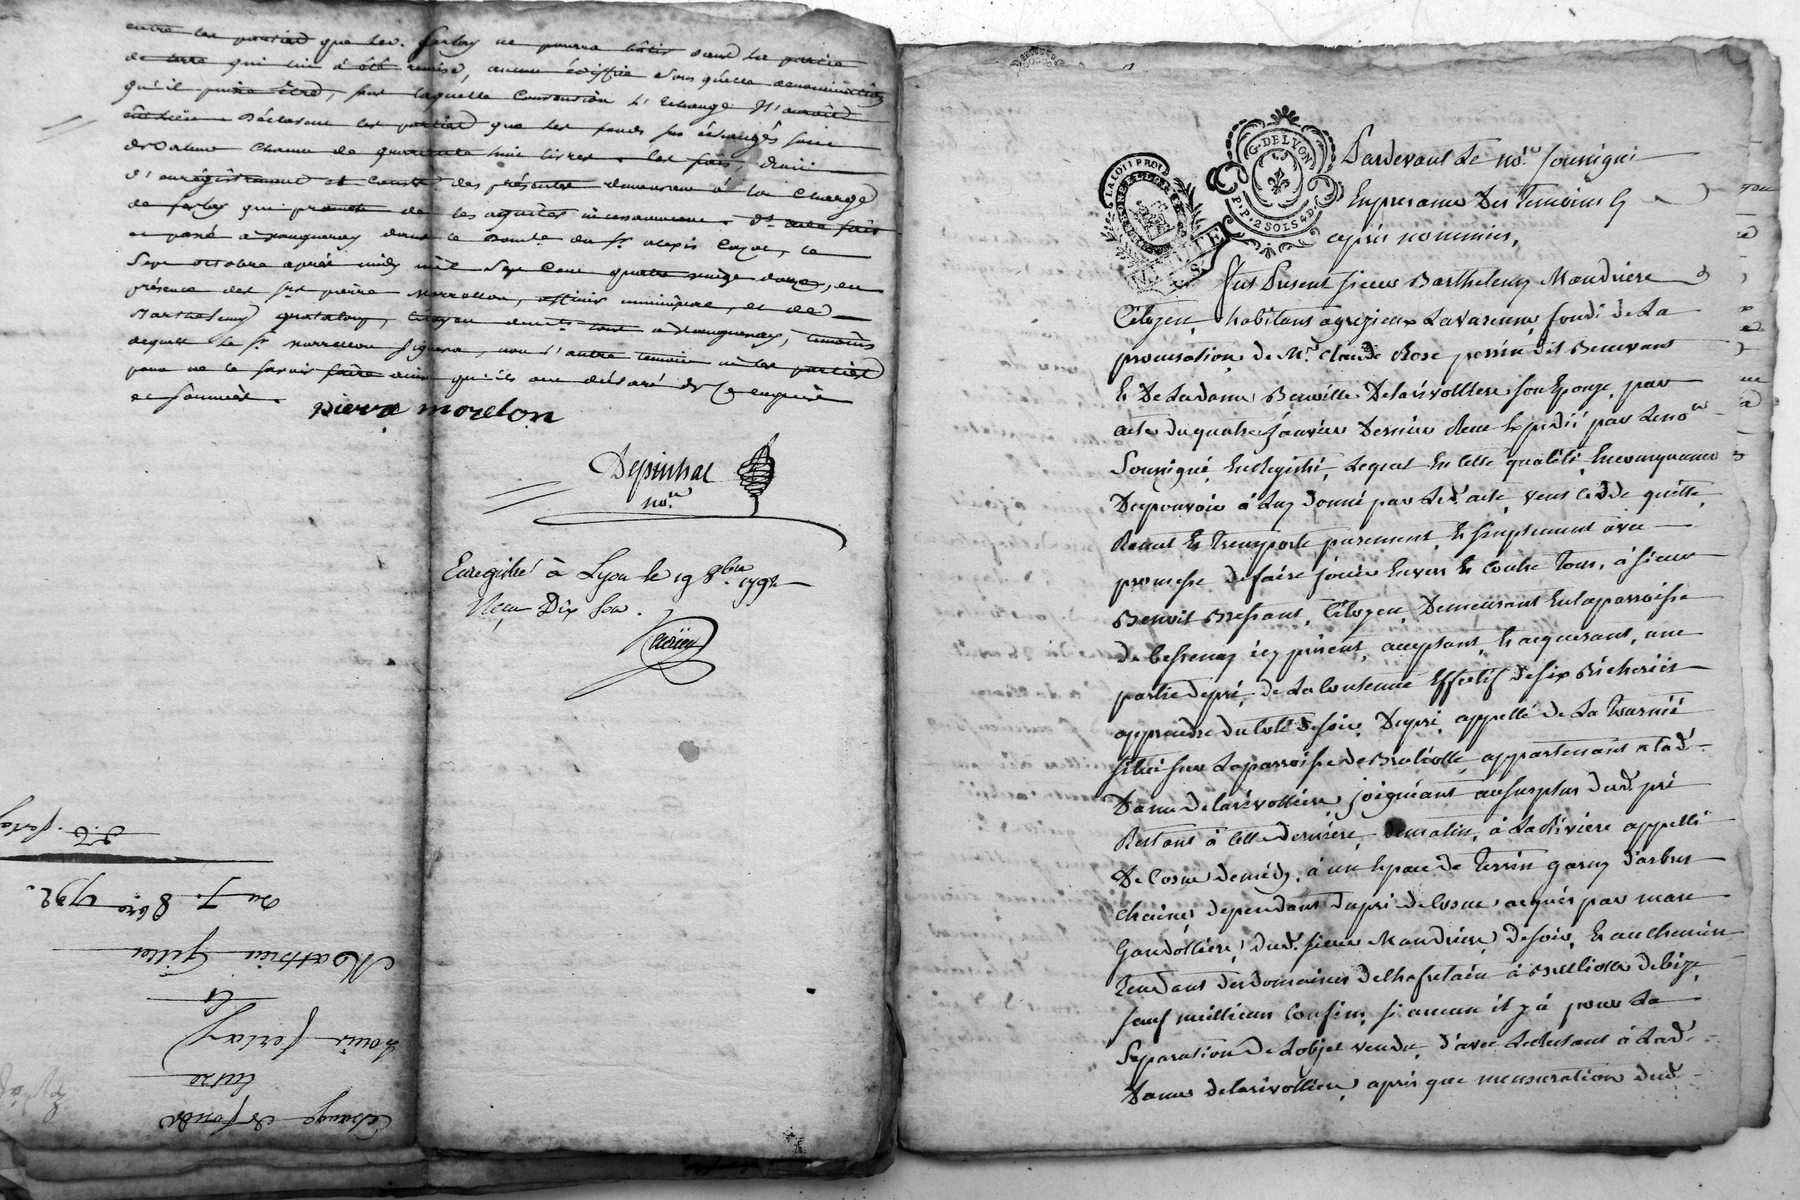 entre les parties que led. ferlay ne pourra bâtir dans la partie
de terre qui lui à été remise, aucun édiffice sous quelle denomination
qu'il puisse être, sans laquelle Convention l'Echange n'auroit
eu lieu. Déclarent les parties que les fonds sus échangés sont
de valeur Chacun de quarante huit livres. les frais, droit
d'enrégistrement et Coust des présentes demeurent à la Charge
de ferlay qui promet de les aquiter incessamment. Dt acte fait
et passé à vaugneray dans le Domle. du sr. alexis Cazot, le
Sept octobre après midy mil Sept Cent quatre vingt douze, en
présence des Srs pierre Morretton, officier municipal, et de
Barthelemy, Citoyen demts tous à vaugneray, témoins
dequels le Sr. morretton Signera, non l'autre temoin ni les parties
pour ne le savoir faire ainsi qu'ils ont déclaré de Ce enquis
et sommés.
pierre moreton
Depinhac
nore
Enregistré à Lyon le 19 8bre 1792
Reçu Dix Sou.
Echange de fonds
Entre
Louis ferlay
Et
Mathieu Gillet
Du 7. 8bre 1792.
E. C. ferlay
LA LOI
G. DE LYON
P.P. 2 SOLS 4 D.
Pardevant Le nore. soussigné
En presance Des Temoins
après nommés,
Fut Present sieur Barthelemy Maudriere
Citoyen, habitant a Lavarenne, fondé de La
procuration de Mr. Claude Rose perrin dit Benevant
Et De La dame Benoitte Delarivolliere son Epouse, par
acte du quatre Janvier Dernier Receu Expedié par Le nore
Soussigné, Enregistré, Lequel En Cette qualité, En consequance
Du pouvoir à Luy donné par Led. acte, vent cedde quitte
Remet Et Transporte purement Et simplement avec
promesse de faire jouir Envers Et Contre Tous, à sieur
Benoit Bressant, Citoyen, Demeurant En la parroisse
de bessenay icy présent, acceptant, Et acquerant, une
partie de pré, de La Contenue Effectif de six Bicherées
apprendre du Coté de soir, Du pré, appellé de La
situé sur La parroisse de Brulliolle, appartenant a lad.
Dame Delarivolliere, joignant au surplus dud. pré
Restant à Cette derniere, de matin, à La Riviere appellé
De Cosne de midy, à un Espace de Terrin garny d'arbres
chaines dependant du pré de Cosne acquis par marc
Gandolliere, dud. sieur Maudriere, de soir, Et au chemin
Tendant des domaines de Chasselain à Brulliolle de bize,
sauf meilleurs Confins, si aucun il y à pour La
Separation de L'objet vendu, d'avec Le Restant à Lad.
Dame delarivolliere, après que mensuration dud.